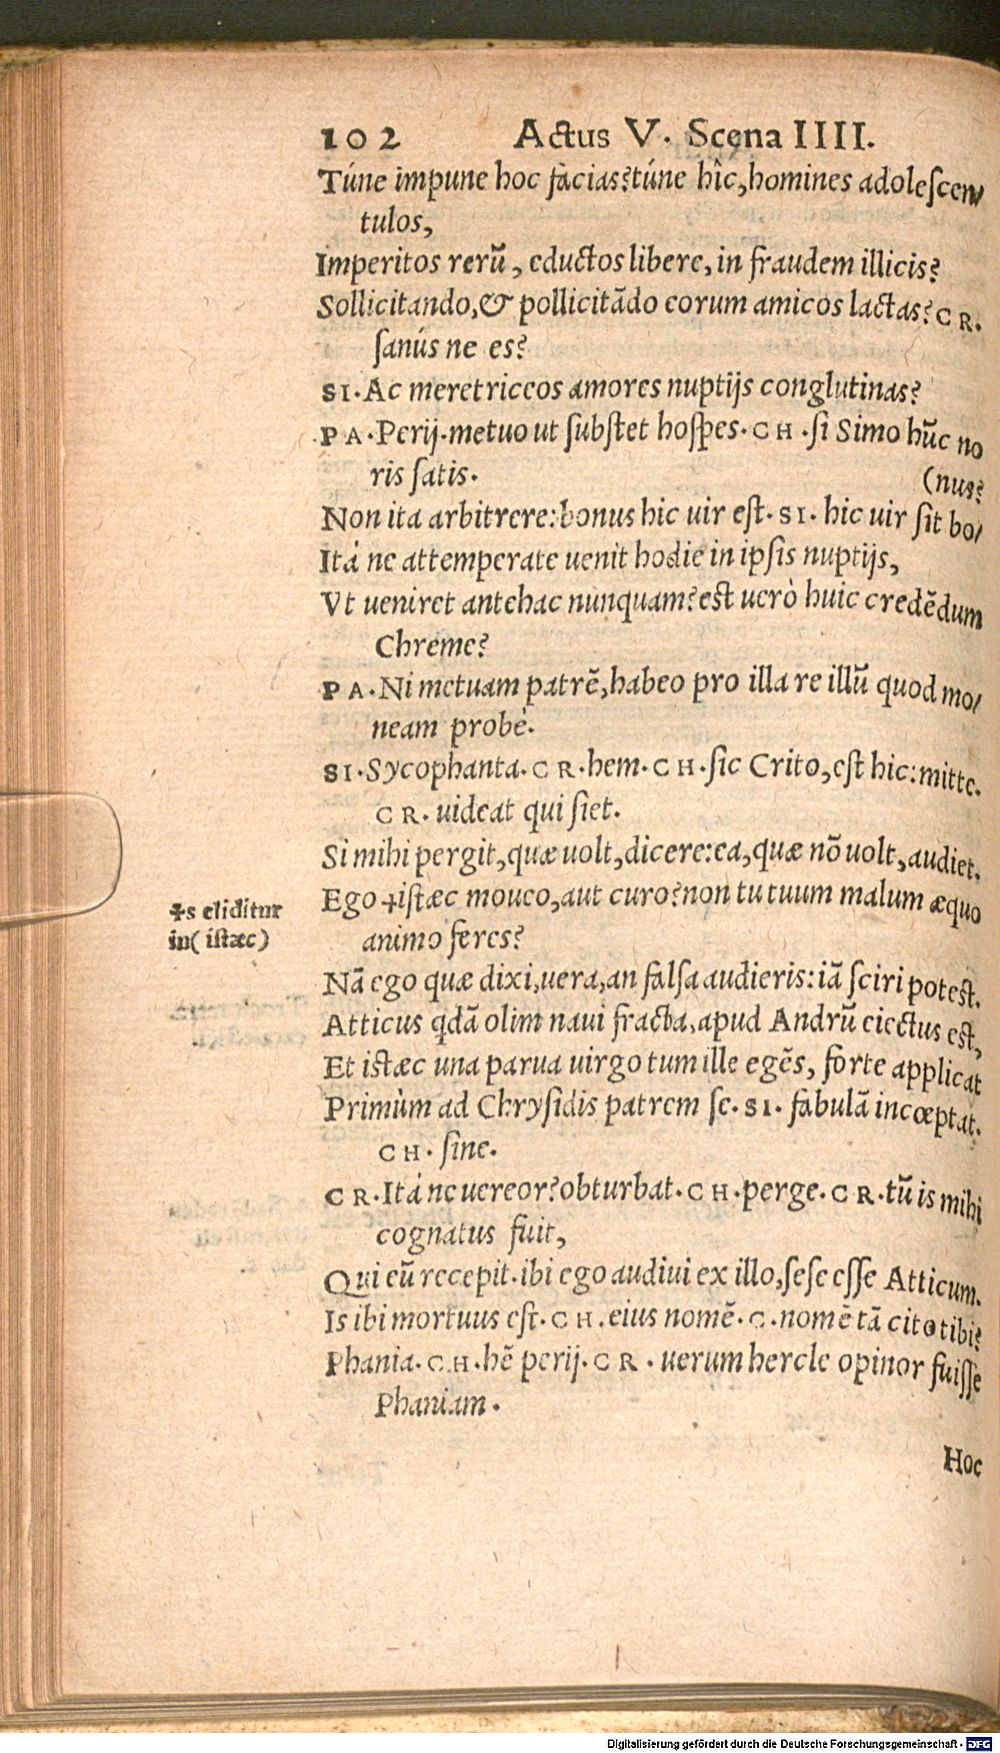 102 Actus V. Scena IIII.
Túne impune hoc fàcias? túne hîc, homines adolescen/
tulos,
Imperitos rerū, eductos libere, in fraudem illicis?
Sollicitando, & pollicitādo eorum amicos lactas? CR.
sanús ne es?
SI. Ac meretriceos amores nuptijs conglutinas?
PA. Perij. metuo ut substet hospes. CH. si Simo hūc no
ris satis. (nus?
Non ita arbitrere: bonus hic uir est. SI. hic uir sit bo/
Itá ne attemperate uenit hodie in ipsis nuptijs,
Vt ueniret antehac nunquam? est uerò huic credēdum
Chreme?
PA. Ni metuam patrē, habeo pro illa re illū quod mo/
neam probè.
SI. Sycophanta. CR. hem. CH. sic Crito, est hic: mitte.
CR. uideat qui siet.
Si mihi pergit, quæ uolt, dicere: ea, quæ nō uolt, audiet.
Ego ✢istæc moueo, aut curo? non tu tuum malum æquo
animo feres?
✢s eliditur
in (istæc)
Nā ego quæ dixi, uera, an falsa audieris: iā sciri potest.
Atticus qdā olim naui fracta, apud Andrū eiectus est,
Et istæc una parua uirgo tum ille egēs, forte applicat
Primùm ad Chrysidis patrem se. SI. fabulā incœptat.
CH. sine.
CR. Itá ne uereor? obturbat. CH. perge. CR. tū is mihi
cognatus fuit,
Qui eū recepit. ibi ego audiui ex illo, sese esse Atticum.
Is ibi mortuus est. CH. eius nomē. C. nomē tā cito tibi?
Phania. CH. hē perij. CR. uerum hercle opinor fuisse
Phaniam.
Hoc
Digitalisierung gefördert durch die Deutsche Forschungsgemeinschaft - DFG